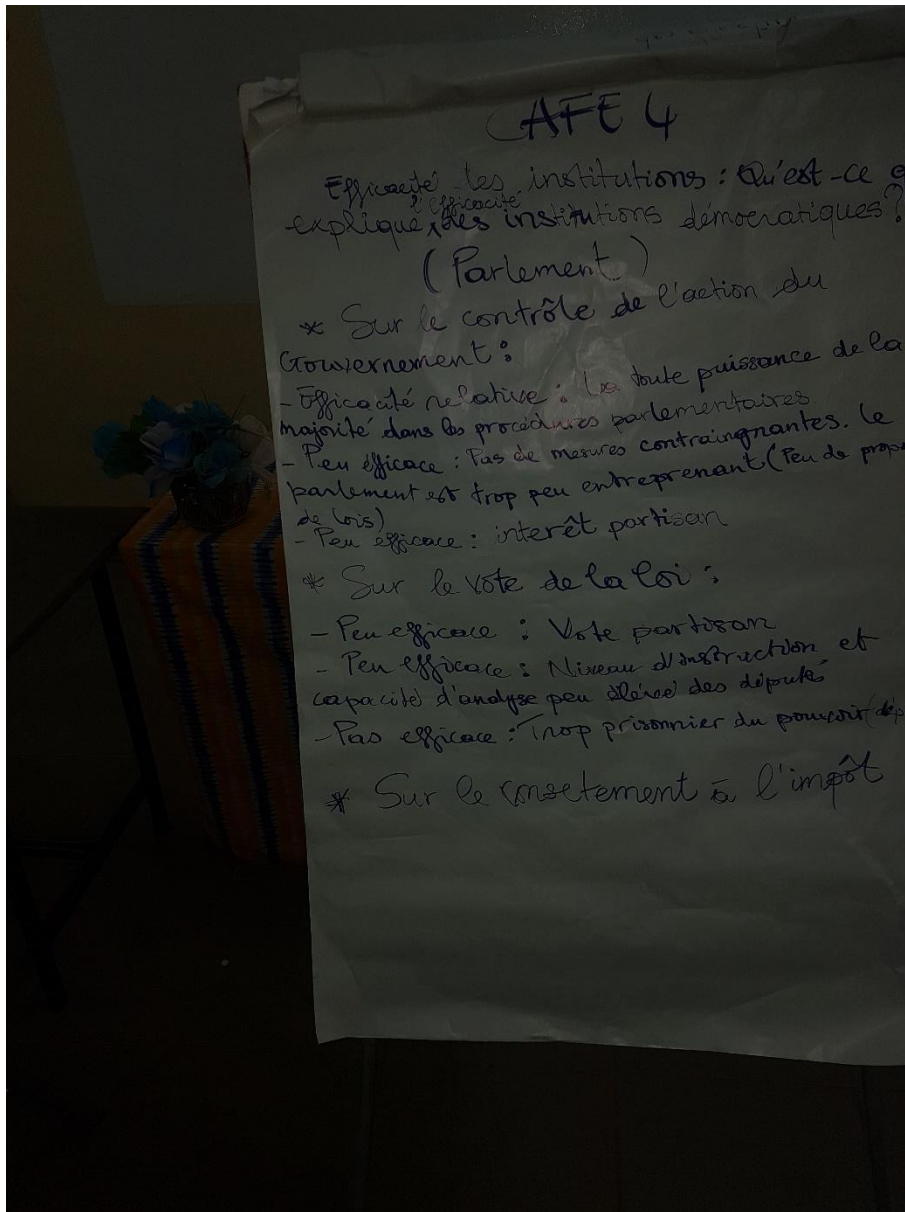 CAFE 4
Efficacité des institutions : Qu'est-ce
l'efficacité
explique, des institutions démocratiques ?
(Parlement)
* Sur le contrôle de l'action du
Gouvernement :
- Efficacité relative : La toute puissance de la
majorité dans les procédures parlementaires
- Peu éfficace : Pas de mesures contraingnantes. Le
parlement est trop peu entreprenant (Peu de
de lois)
- Peu éfficace : interêt partisan
* Sur le vote de la loi :
- Peu efficace : Vote partisan
- Peu efficace : Niveau d'instruction et
capacité d'analyse peu élévé des députés
- Pas efficace : Trop prisonnier du pouvoir
* Sur le consetement à l'impôt